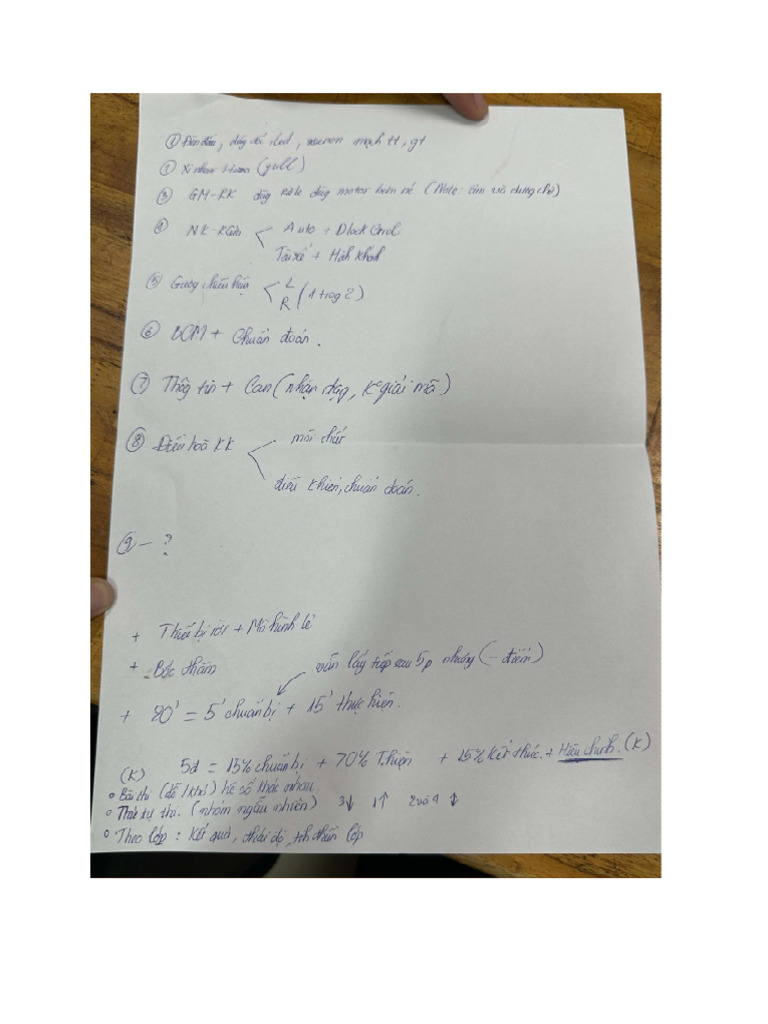 ① Đèn đầu, dây đôi, led, xenon mạch tt, gt
② Xi nhan + Hazard (full)
③ GM-RK dùng Rơle dùng motor (Note tìm và dừng chờ)
④ NK-KCửa Auto + Dlock Ctrol
Tài xế + Hành khách
⑤ Gương chiếu hậu L
R (1 trog 2)
⑥ BCM + Chuẩn đoán.
⑦ Thôg tin + Can (nhận dạg, Ko giải mã)
⑧ Điều hoà KK môi chất
điều khiển, chuẩn đoán.
⑨ - ?
+ Thiết bị rời + Mô hình lẻ
+ Bốc thăm vẫn lấy tiếp sau 5p nhưng (- điểm)
+ 20' = 5' chuẩn bị + 15' thực hiện.
(K) 5đ = 15% chuẩn bị + 70% T.hiện + 15% Kết thúc + Hiệu chỉnh. (K)
° Bài thi (dễ / khó) hệ số khác nhau.
° Thứ tự thi. (nhóm ngẫu nhiên) 3↓ 1↑ 2 và 4 ↕
° Theo lớp: Kết quả, thái độ, tinh thần lớp